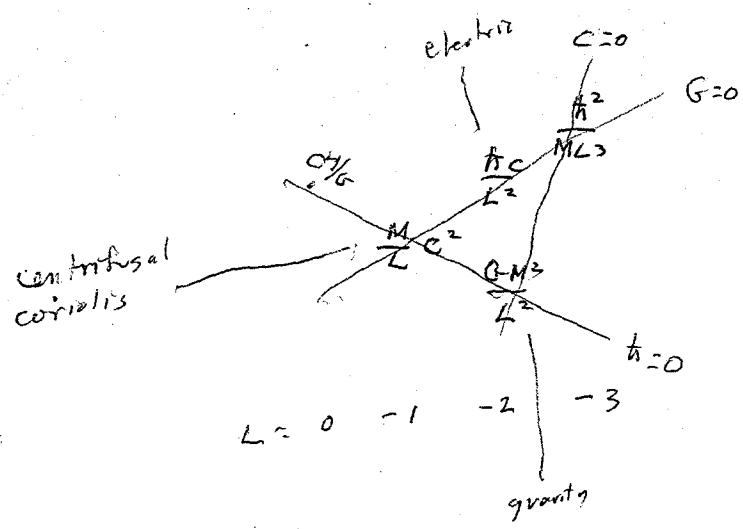 electric
C=0
G=0
ħ²
ML3
ħc
L²
C4/G
M
L
C²
centrifugal
coriolis
GM²
L²
ħ=0
L= 0 -1 -2 -3
gravity